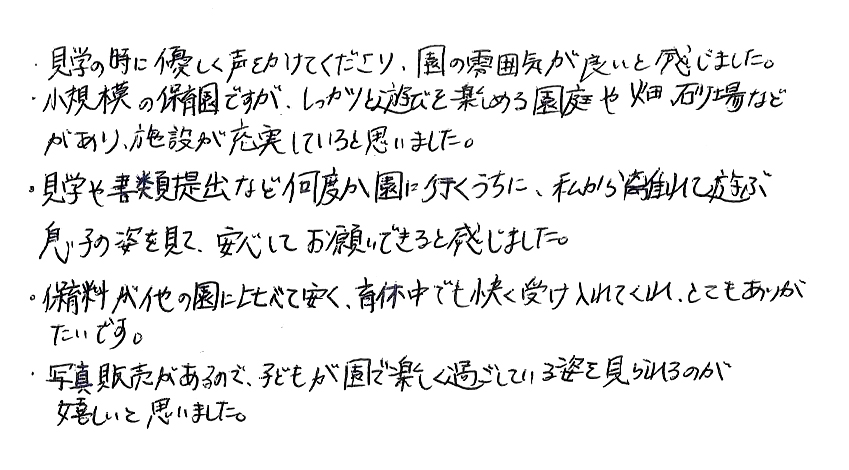 ・見学の時に優しく声をかけてくださり、園の雰囲気が良いと感じました。
・小規模の保育園ですが、しっかりと遊びを楽しめる園庭や畑、砂場など
があり、施設が充実していると思いました。
・見学や書類提出など何度か園に行くうちに、私から離れて遊ぶ
息子の姿を見て、安心してお願いできると感じました。
・保育料が他の園に比べて安く、育休中でも快く受け入れてくれ、とてもありが
たいです。
・写真販売があるので、子どもが園で楽しく過ごしている姿を見られるのが
嬉しいと思いました。